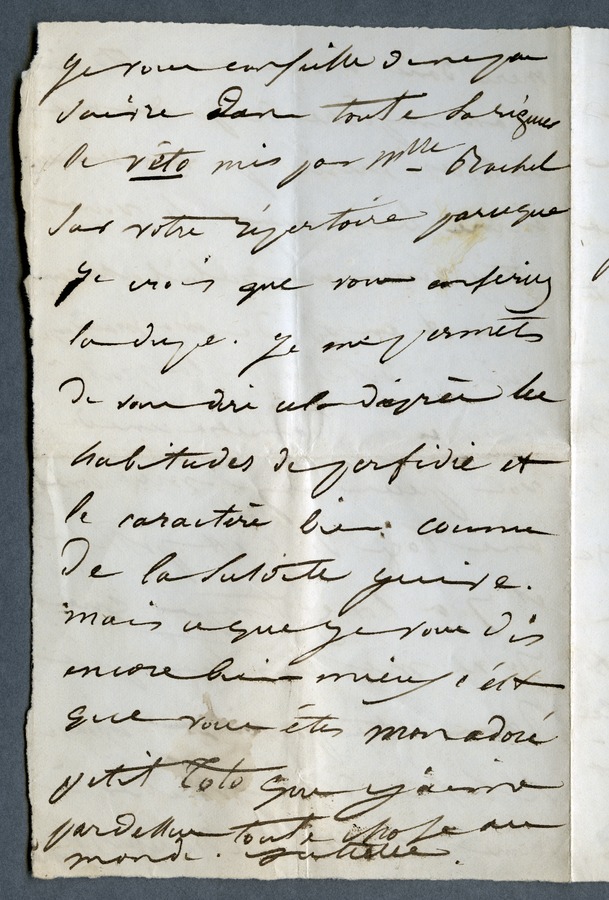 je vous conseille de ne pas
suivre dans toute sa rigueur
le véto mis par Mlle Rachel
sur votre répertoire parceque
je crois que vous en seriez
la dupe. Je me permets
de vous dire cela d'après les
habitudes de perfidie et
le caractère bien connu
de la susdite juive.
mais ce que je vous dis
encore bien mieux c'est
que vous êtes mon adoré
petit Toto que j'aime
pardessus toute chose au
monde. Juliette.